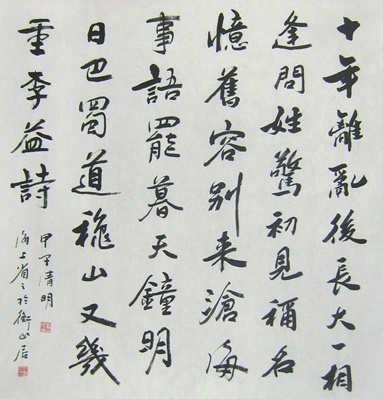 十年離亂後長大一相
逢問姓驚初見稱名
憶舊容别来滄海
事語罷暮天鐘明
日巴蜀道穐山又幾
重李益詩
甲子清明
海上省之於衡山居